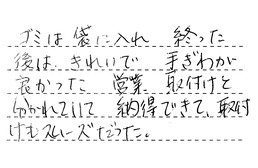 ゴミは袋に入れ 終った
後は、きれいで 手ぎわが
良かった 営業 取付けと
分かれていて 納得できて、取付
けもスムーズだった。